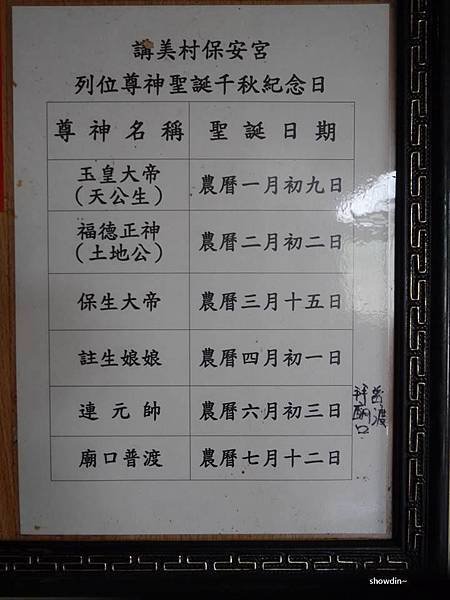 講美村保安宮
列位尊神聖誕千秋紀念日
尊神名稱 聖誕日期
玉皇大帝
(天公生)
農曆一月初九日
福德正神
(土地公)
農曆二月初二日
保生大帝 農曆三月十五日
註生娘娘 農曆四月初一日
連元帥 農曆六月初三日
廟口普渡 農曆七月十二日
普渡
showdin~